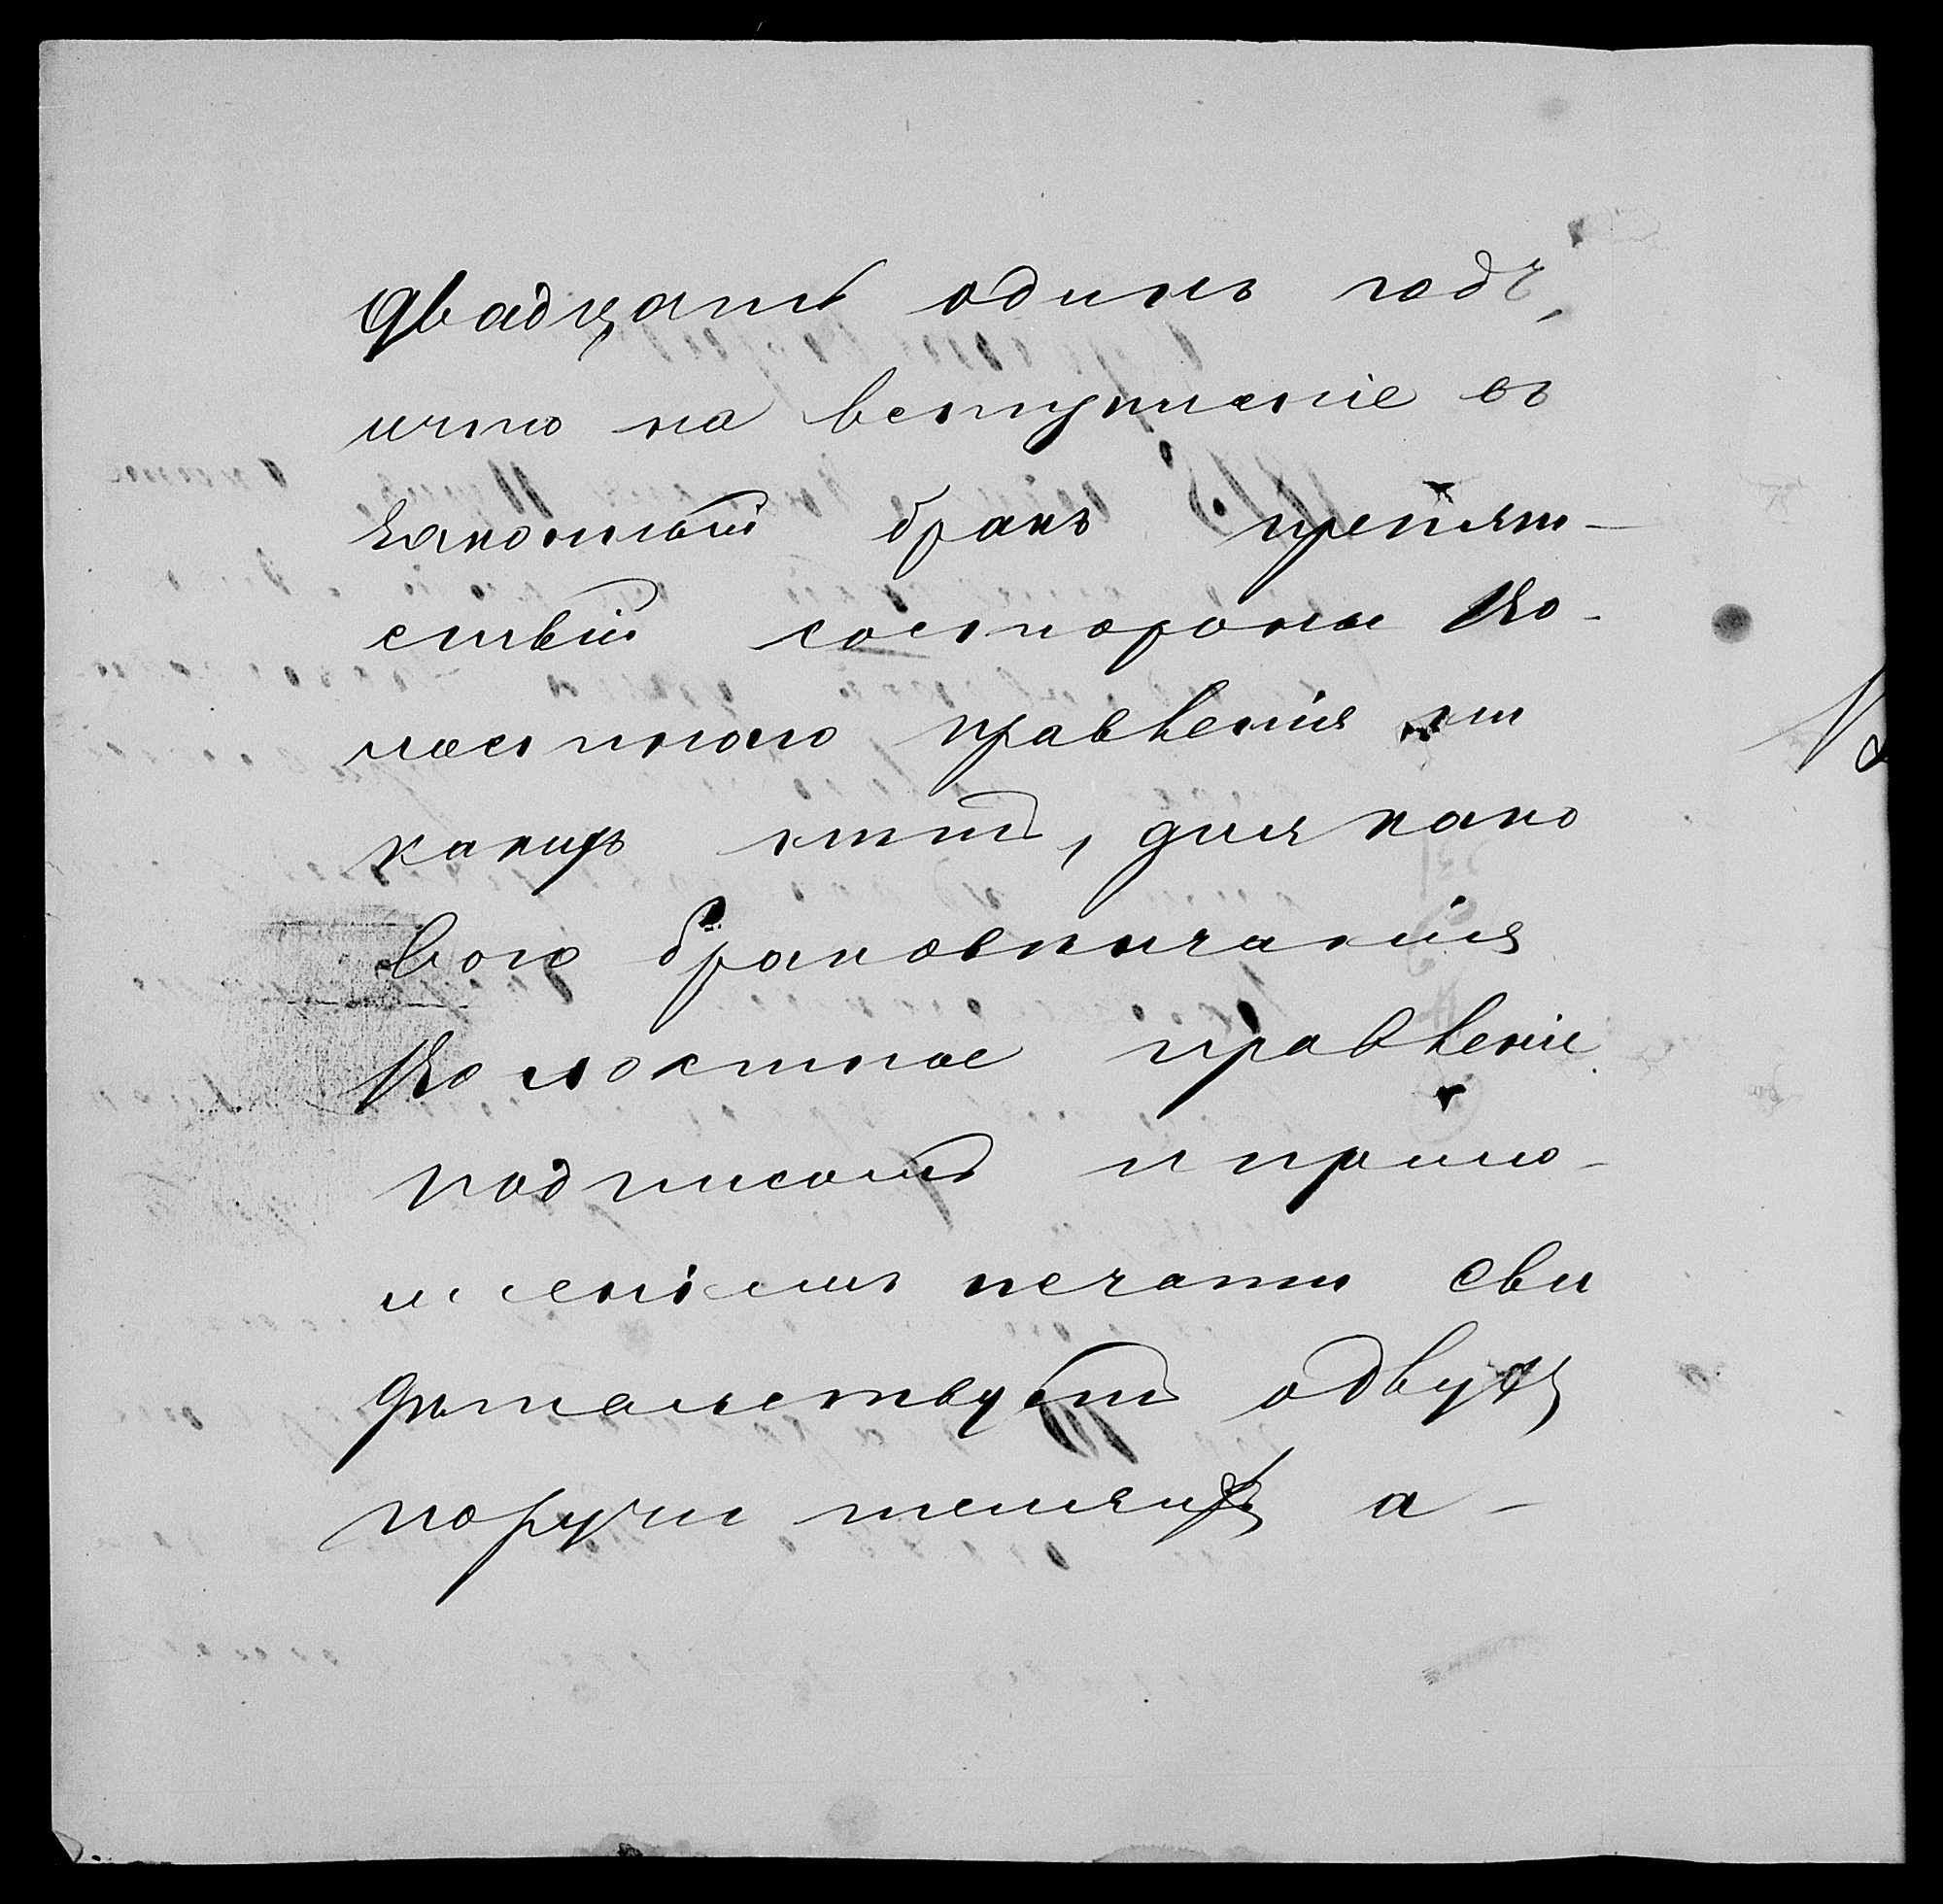 двадцать одинъ годъ,
ичто на вступленіе въ
законный бракъ препят-
ствій состороны Во-
лостнаго правленія ни
какихъ нѣтъ, для како
вого браковѣнчанія
Волостное правленіе
подписомъ и прило-
женіемъ печати сви
дѣтельствуетъ одвухъ
поручителяхъ а-